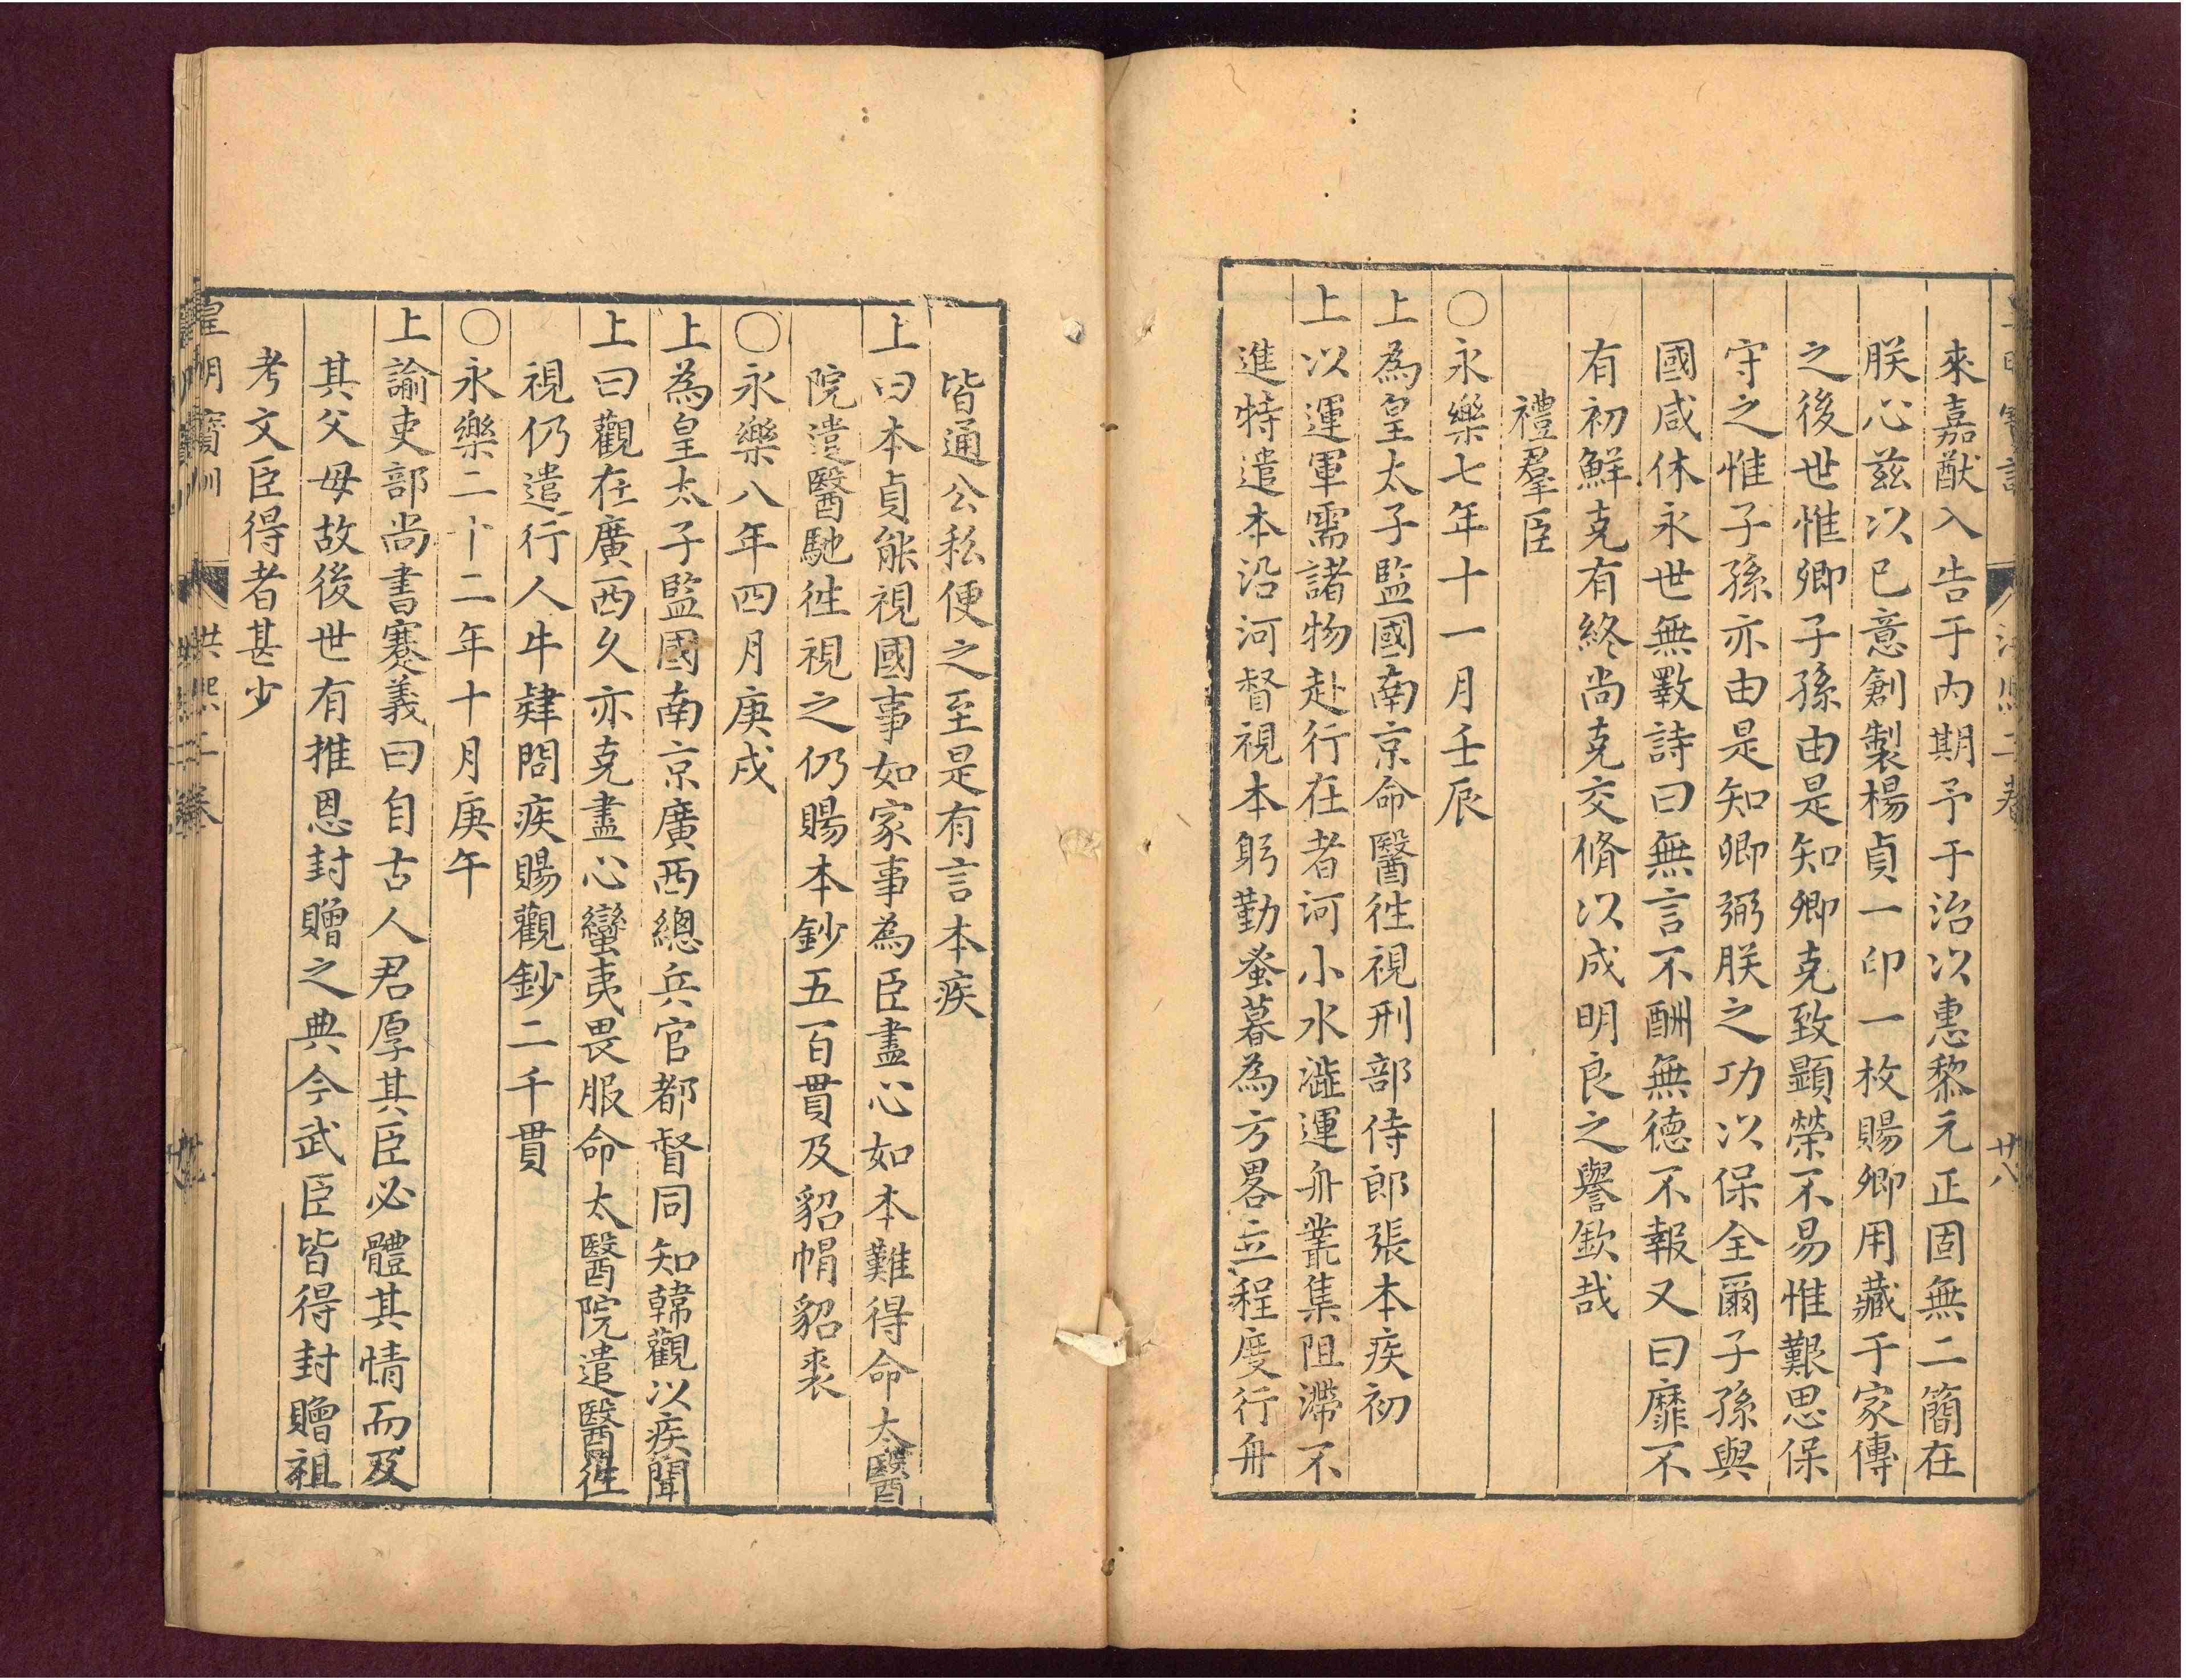 來嘉猷入告于內期予于治以惠黎元正固無二簡在
朕心茲以已意創製楊貞一印一枚賜卿用藏于家傳
之後世惟卿子孫由是知卿克致顯榮不易惟艱思保
守之惟子孫亦由是知卿弼朕之功以保全爾子孫與
國咸休永世無斁詩曰無言不酬無德不報又曰靡不
有初鮮克有終尚克交脩以成明良之譽欽哉
禮羣臣
〇永樂七年十一月壬辰
上為皇太子監國南京命醫徃視刑部侍郎張本疾初
上以運軍需諸物赴行在者河小水澁運舟叢集阻滯不
進特遣本沿河督視本躬勤蚤暮為方畧立程度行舟
皆通公私便之至是有言本疾
上曰本貞能視國事如家事為臣盡心如本難得命太醫
院遣醫馳徃視之仍賜本鈔五百貫及貂帽貂裘
〇永樂八年四月庚戌
上為皇太子監國南京廣西總兵官都督同知韓觀以疾聞
上曰觀在廣西久亦克盡心蠻夷畏服命太醫院遣醫徃
視仍遣行人牛肄問疾賜觀鈔二千貫
〇永樂二十二年十月庚午
上諭吏部尚書蹇義曰自古人君厚其臣必體其情而及
其父母故後世有推恩封贈之典今武臣皆得封贈祖
考文臣得者甚少
皇明寶訓 洪熙二卷 廿九